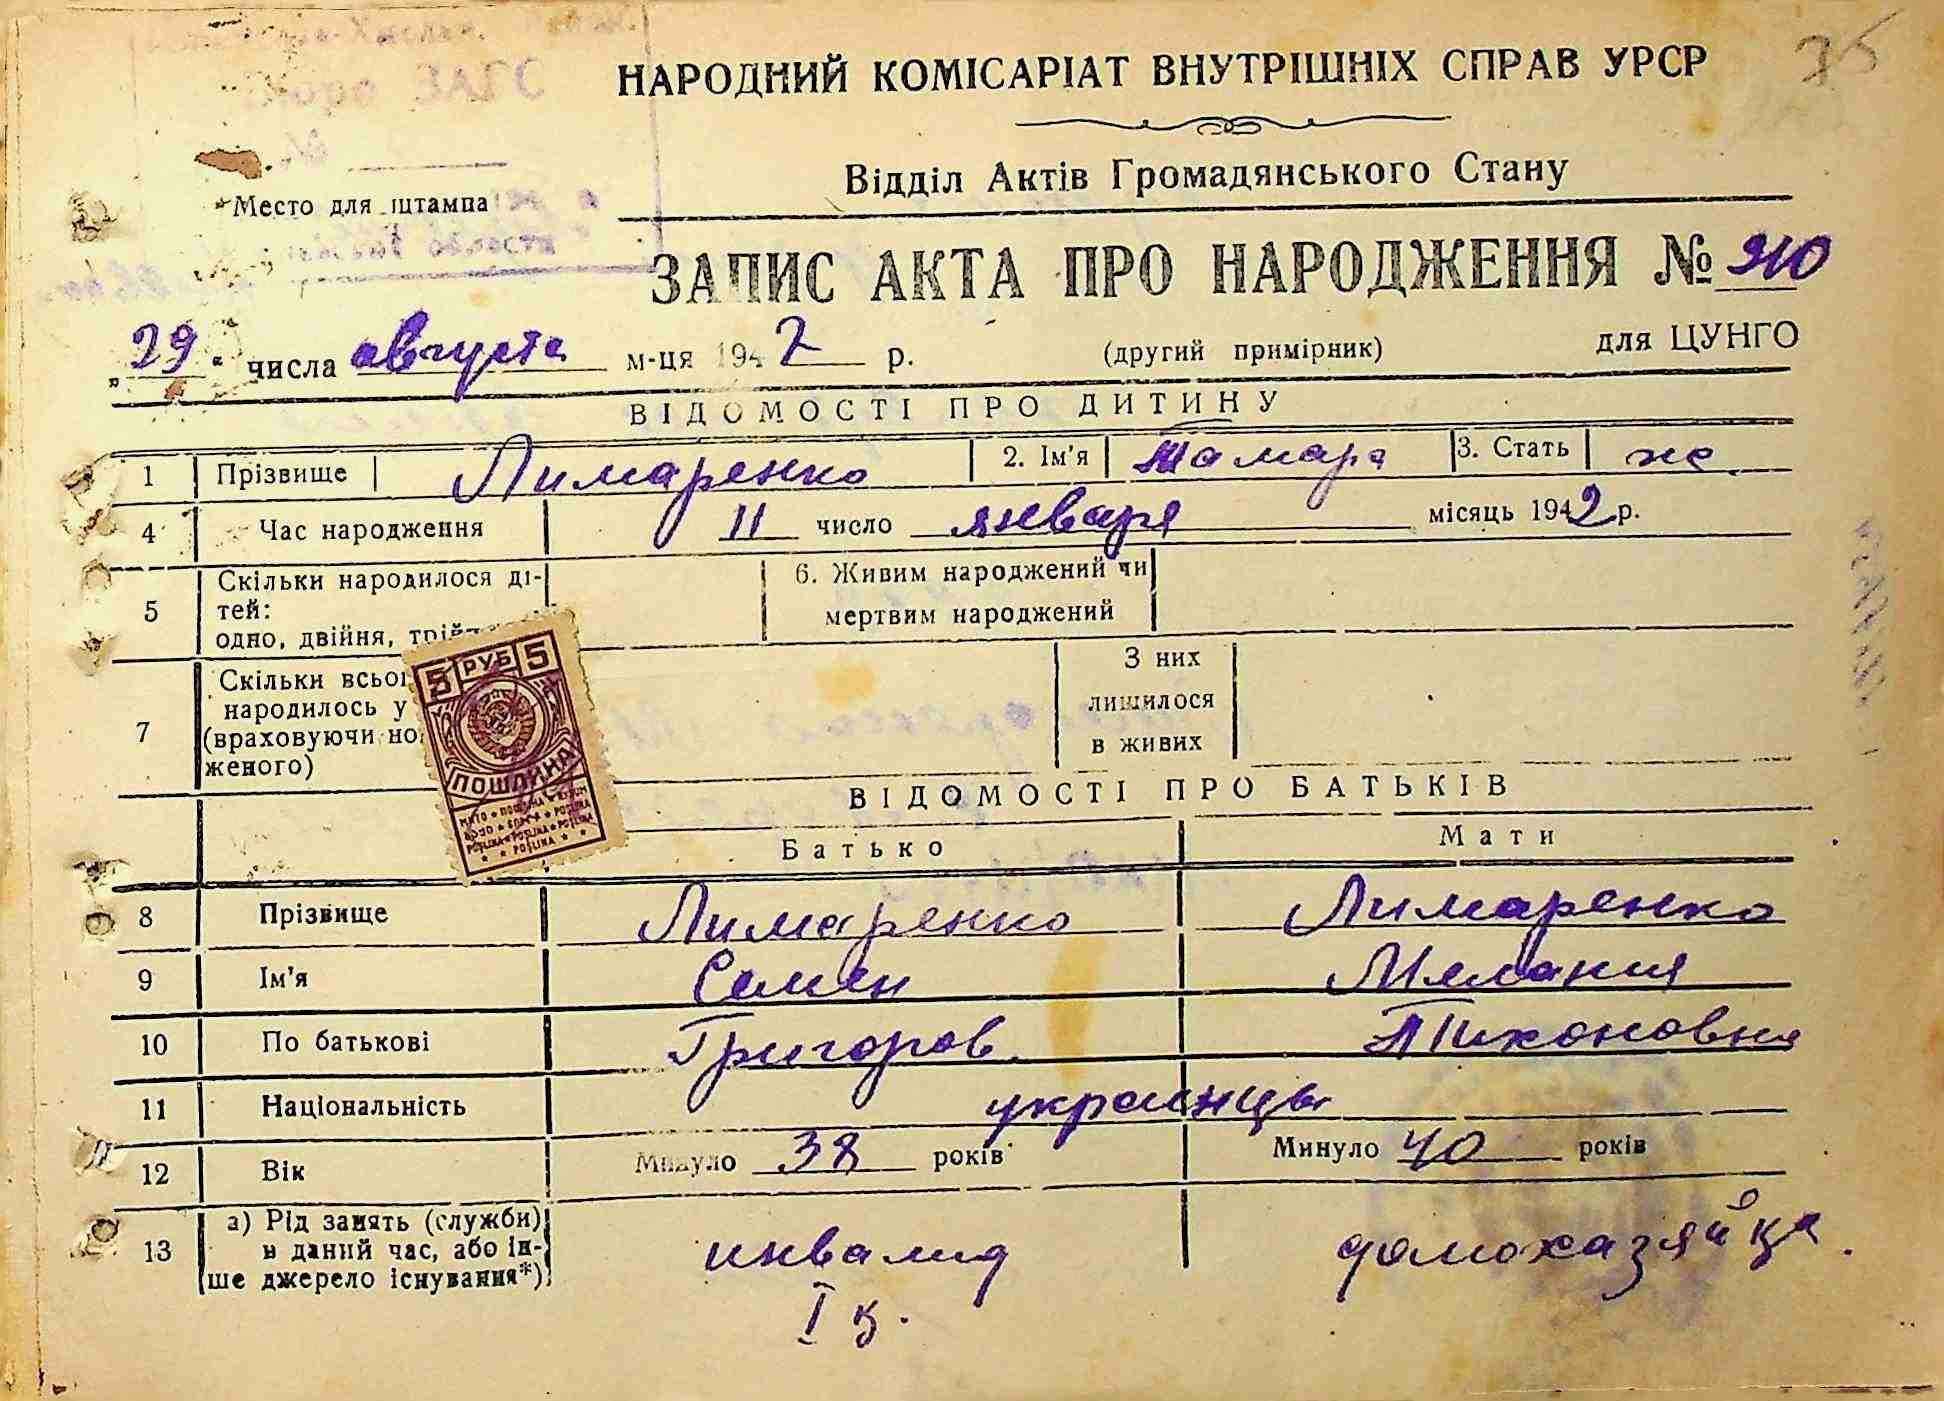 75
НАРОДНИЙ КОМІСАРІАТ ВНУТРІШНІХ СПРАВ УРСР
Відділ Актів Громадянського Стану
Место для штампа
ЗАПИС АКТА ПРО НАРОДЖЕННЯ № 910
„29" числа августа м-ця 1947 р. (другий примірник) для ЦУНГО
ВІДОМОСТІ ПРО ДИТИНУ
1 Прізвище Лимаренко 2. Ім'я Тамара 3. Стать же
4 Час народження 11 число января місяць 1942 р.
5 Скільки народилося ді-
тей:
одно, двійня, трій
6. Живим народжений чи
мертвим народжений
7 Скільки всьо
народилось у
(враховуючи но
женого)
З них
лишилося
в живих
5 РУБ 5
ПОШЛИНА
POSLINA
ВІДОМОСТІ ПРО БАТЬКІВ
Батько Мати
8 Прізвище Лимаренко Лимаренко
9 Ім'я Семен Мелания
10 По батькові Григоров. Тихоновна
11 Національність украинцы
12 Вік Минуло 38 років Минуло 40 років
13 а) Рід занять (служби)
в даний час, або ін-
ше джерело існування*)
инвалид
I г.
домохазяйка.